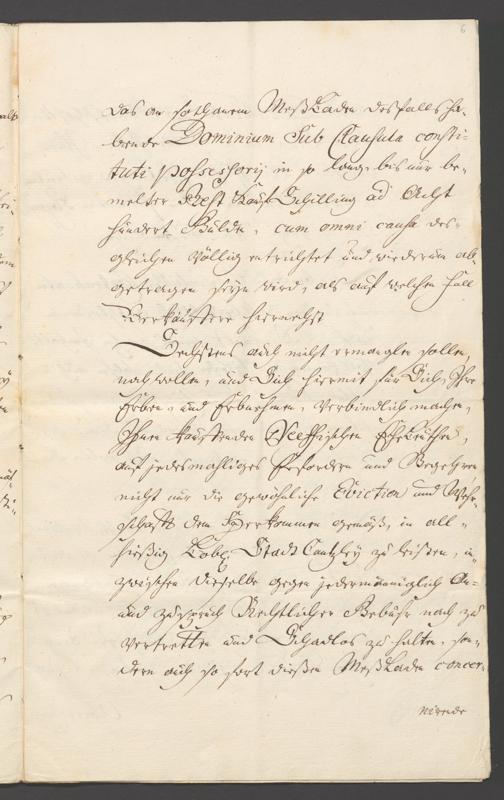 6
das an sothanem Meßladen desfalls ha-
bende Dominium Sub Clausula consti-
tuti possessorij in so lang, bis nur be-
melter Rest Kauf Schilling ad Acht
hundert Gulden, cum omni causa des-
gleichen völlig entrichtet und wiederum ab-
getragen seyn wird, als auf welchen Fall
Verkäuffere hiernechst
Sechstens auch nicht ermanglen sollen,
noch wollen, und Sich hiermit für Sich, Ihre
Erben, und Erbnehmen, verbindlich machen,
Ihnen kauffenden Eheleuthen,
auf jedesmahliges Erfordern und Begehren
nicht nur die gewöhnliche Eviction und Wehr-
schafft dem Herkommen gemäß, in all-
hiesig Löbl. Stadt Cantzley zu leisten, in-
zwischen dieselbe gegen jedermänniglich An-
und Zuspruch Rechtlicher Gebühr nach zu
vertretten und Schadlos zu halten, son-
dern auch so fort diesen Meßladen concer-
nirende